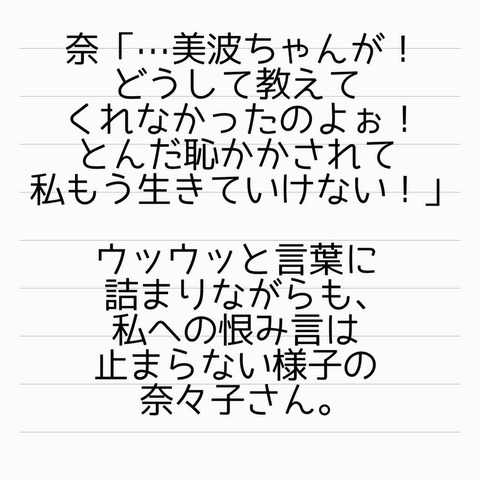 奈「…美波ちゃんが！
どうして教えて
くれなかったのよぉ！
とんだ恥かかされて
私もう生きていけない！」
ウッウッと言葉に
詰まりながらも、
私への恨み言は
止まらない様子の
奈々子さん。